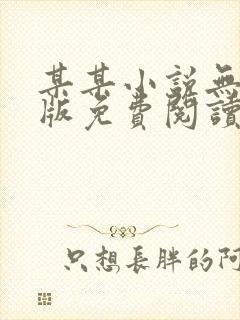 某某小説無
版免費閱讀
只想長胖的阿